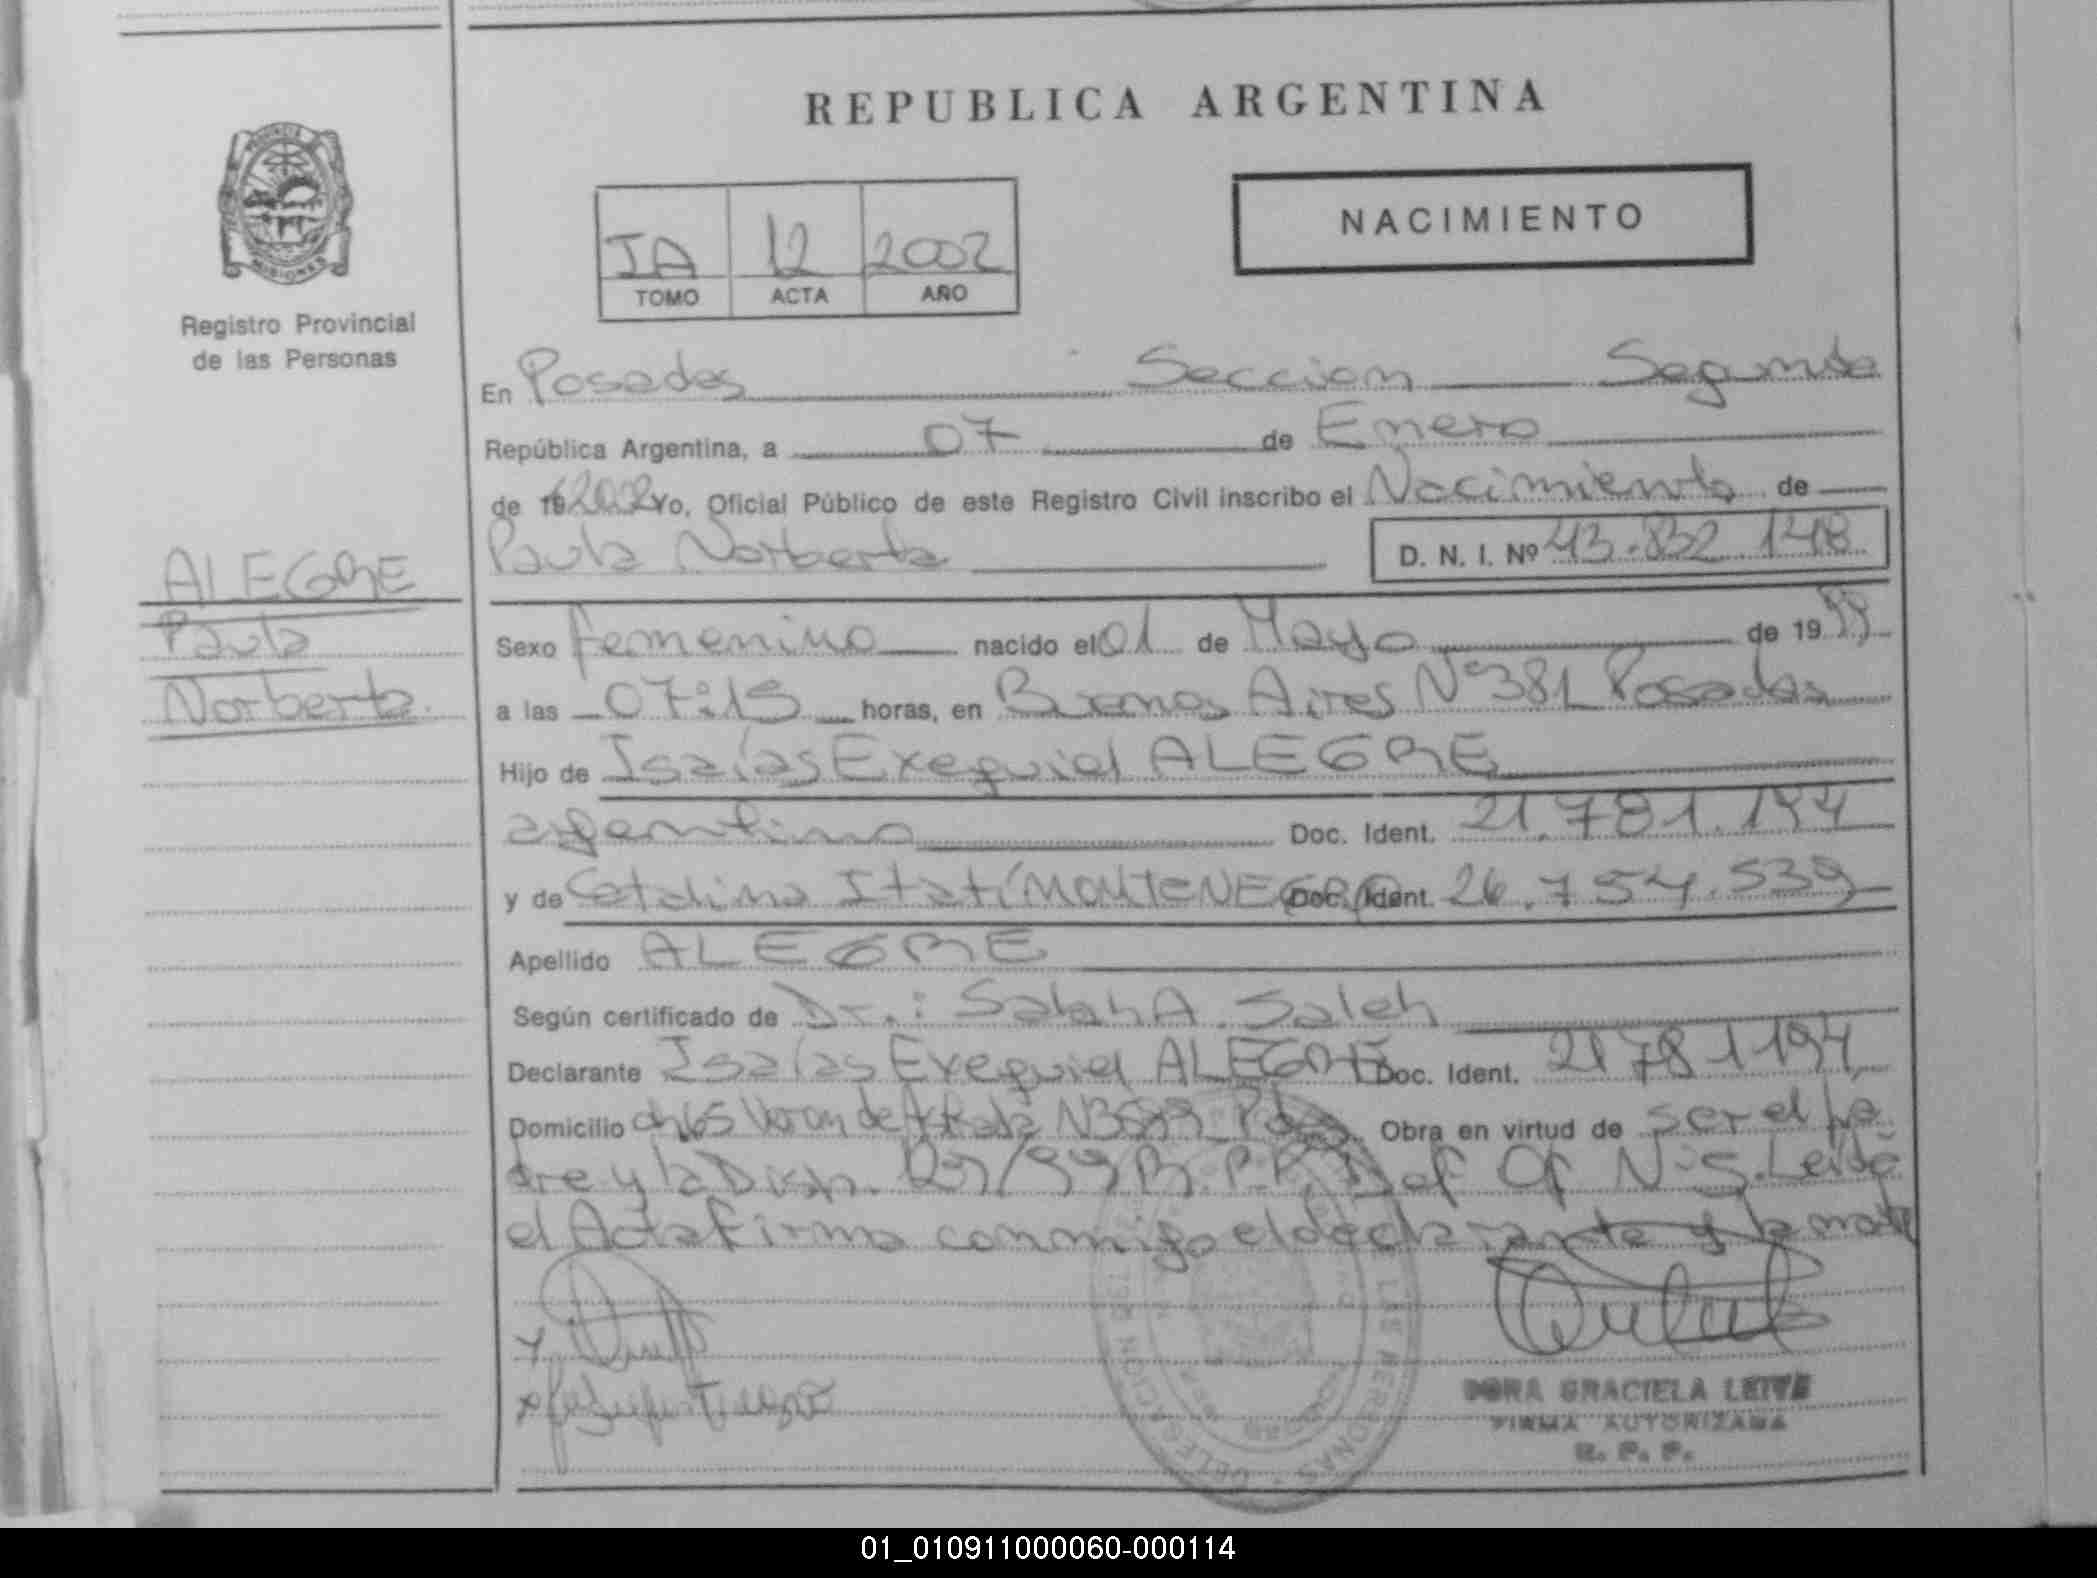 REPUBLICA ARGENTINA
PROVINCIA
MISIONES
Registro Provincial
de las Personas
NACIMIENTO
IA 12 2002
TOMO ACTA AÑO
En Posadas Seccion Segunda
República Argentina, a 07 de Enero
de 19 2002 Yo, Oficial Público de este Registro Civil inscribo el Nacimiento de
Paula Norberta D. N. I. Nº 43.832 148
ALEGRE
Paula
Norberta.
Sexo femenino nacido el 01 de Mayo de 1999
a las 07:15 horas, en Buenos Aires Nº 381 Posadas
Hijo de Isaías Exequiel ALEGRE
argentino Doc. Ident. 21.781.194
y de Catalina Itatí MONTENEGRO Doc. Ident. 26.754.539
Apellido ALEGRE
Según certificado de Dr.: Salah A. Saleh
Declarante Isaías Exequiel ALEGRE Doc. Ident. 21781194
Domicilio ch 65 de Obra en virtud de ser el pa
dre y la Disp. /99 R.P.P. Def Of N.G. Leida
el Acta firma conmigo el declarante y la madre
DORA GRACIELA LEIVE
FIRMA AUTORIZADA
R. P. P.
01_010911000060-000114